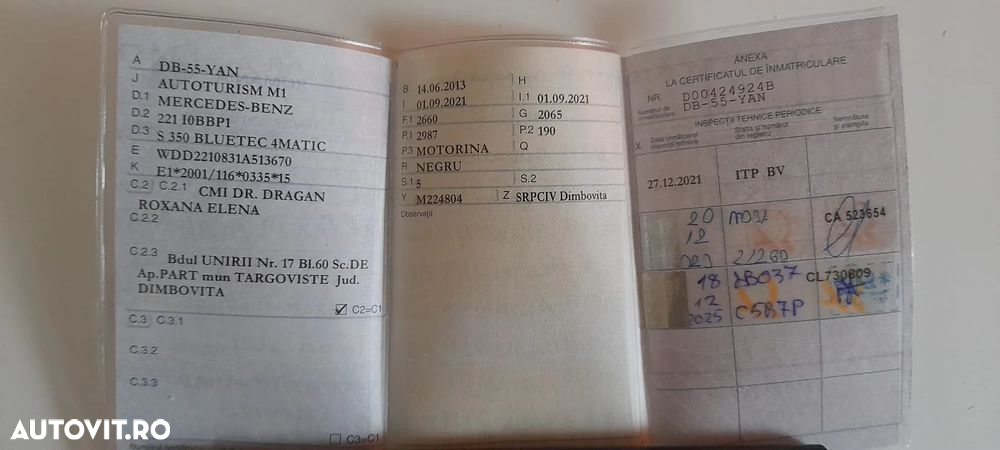 A DB-55-YAN
J AUTOTURISM M1
D.1 MERCEDES-BENZ
D.2 221 I0BBP1
D.3 S 350 BLUETEC 4MATIC
E WDD2210831A513670
K E1*2001/116*0335*15
C.2 C.2.1 CMI DR. DRAGAN
ROXANA ELENA
C.2.2
C.2.3 Bdul UNIRII Nr. 17 Bl.60 Sc.DE
Ap.PART mun TARGOVISTE Jud.
DIMBOVITA
C2=C1
C.3 C.3.1
C.3.2
C.3.3
C3=C1
B 14.06.2013 H
I 01.09.2021 I.1 01.09.2021
F.1 2660 G 2065
P.1 2987 P.2 190
P.3 MOTORINA Q
R NEGRU
S.1 5 S.2
Y M224804 Z SRPCIV Dimbovita
Observaţii
ANEXA
LA CERTIFICATUL DE ÎNMATRICULARE
NR. D00424924B
Numărul de înmatriculare DB-55-YAN
INSPECŢII TEHNICE PERIODICE
X Data următoarei inspecţii tehnice
Staţia şi numărul din registru
Semnătura şi ştampila
27.12.2021 ITP BV
20
12
CA 523654
18 JB037 CL730809
12
2025 C5B7P
AUTOVIT.RO